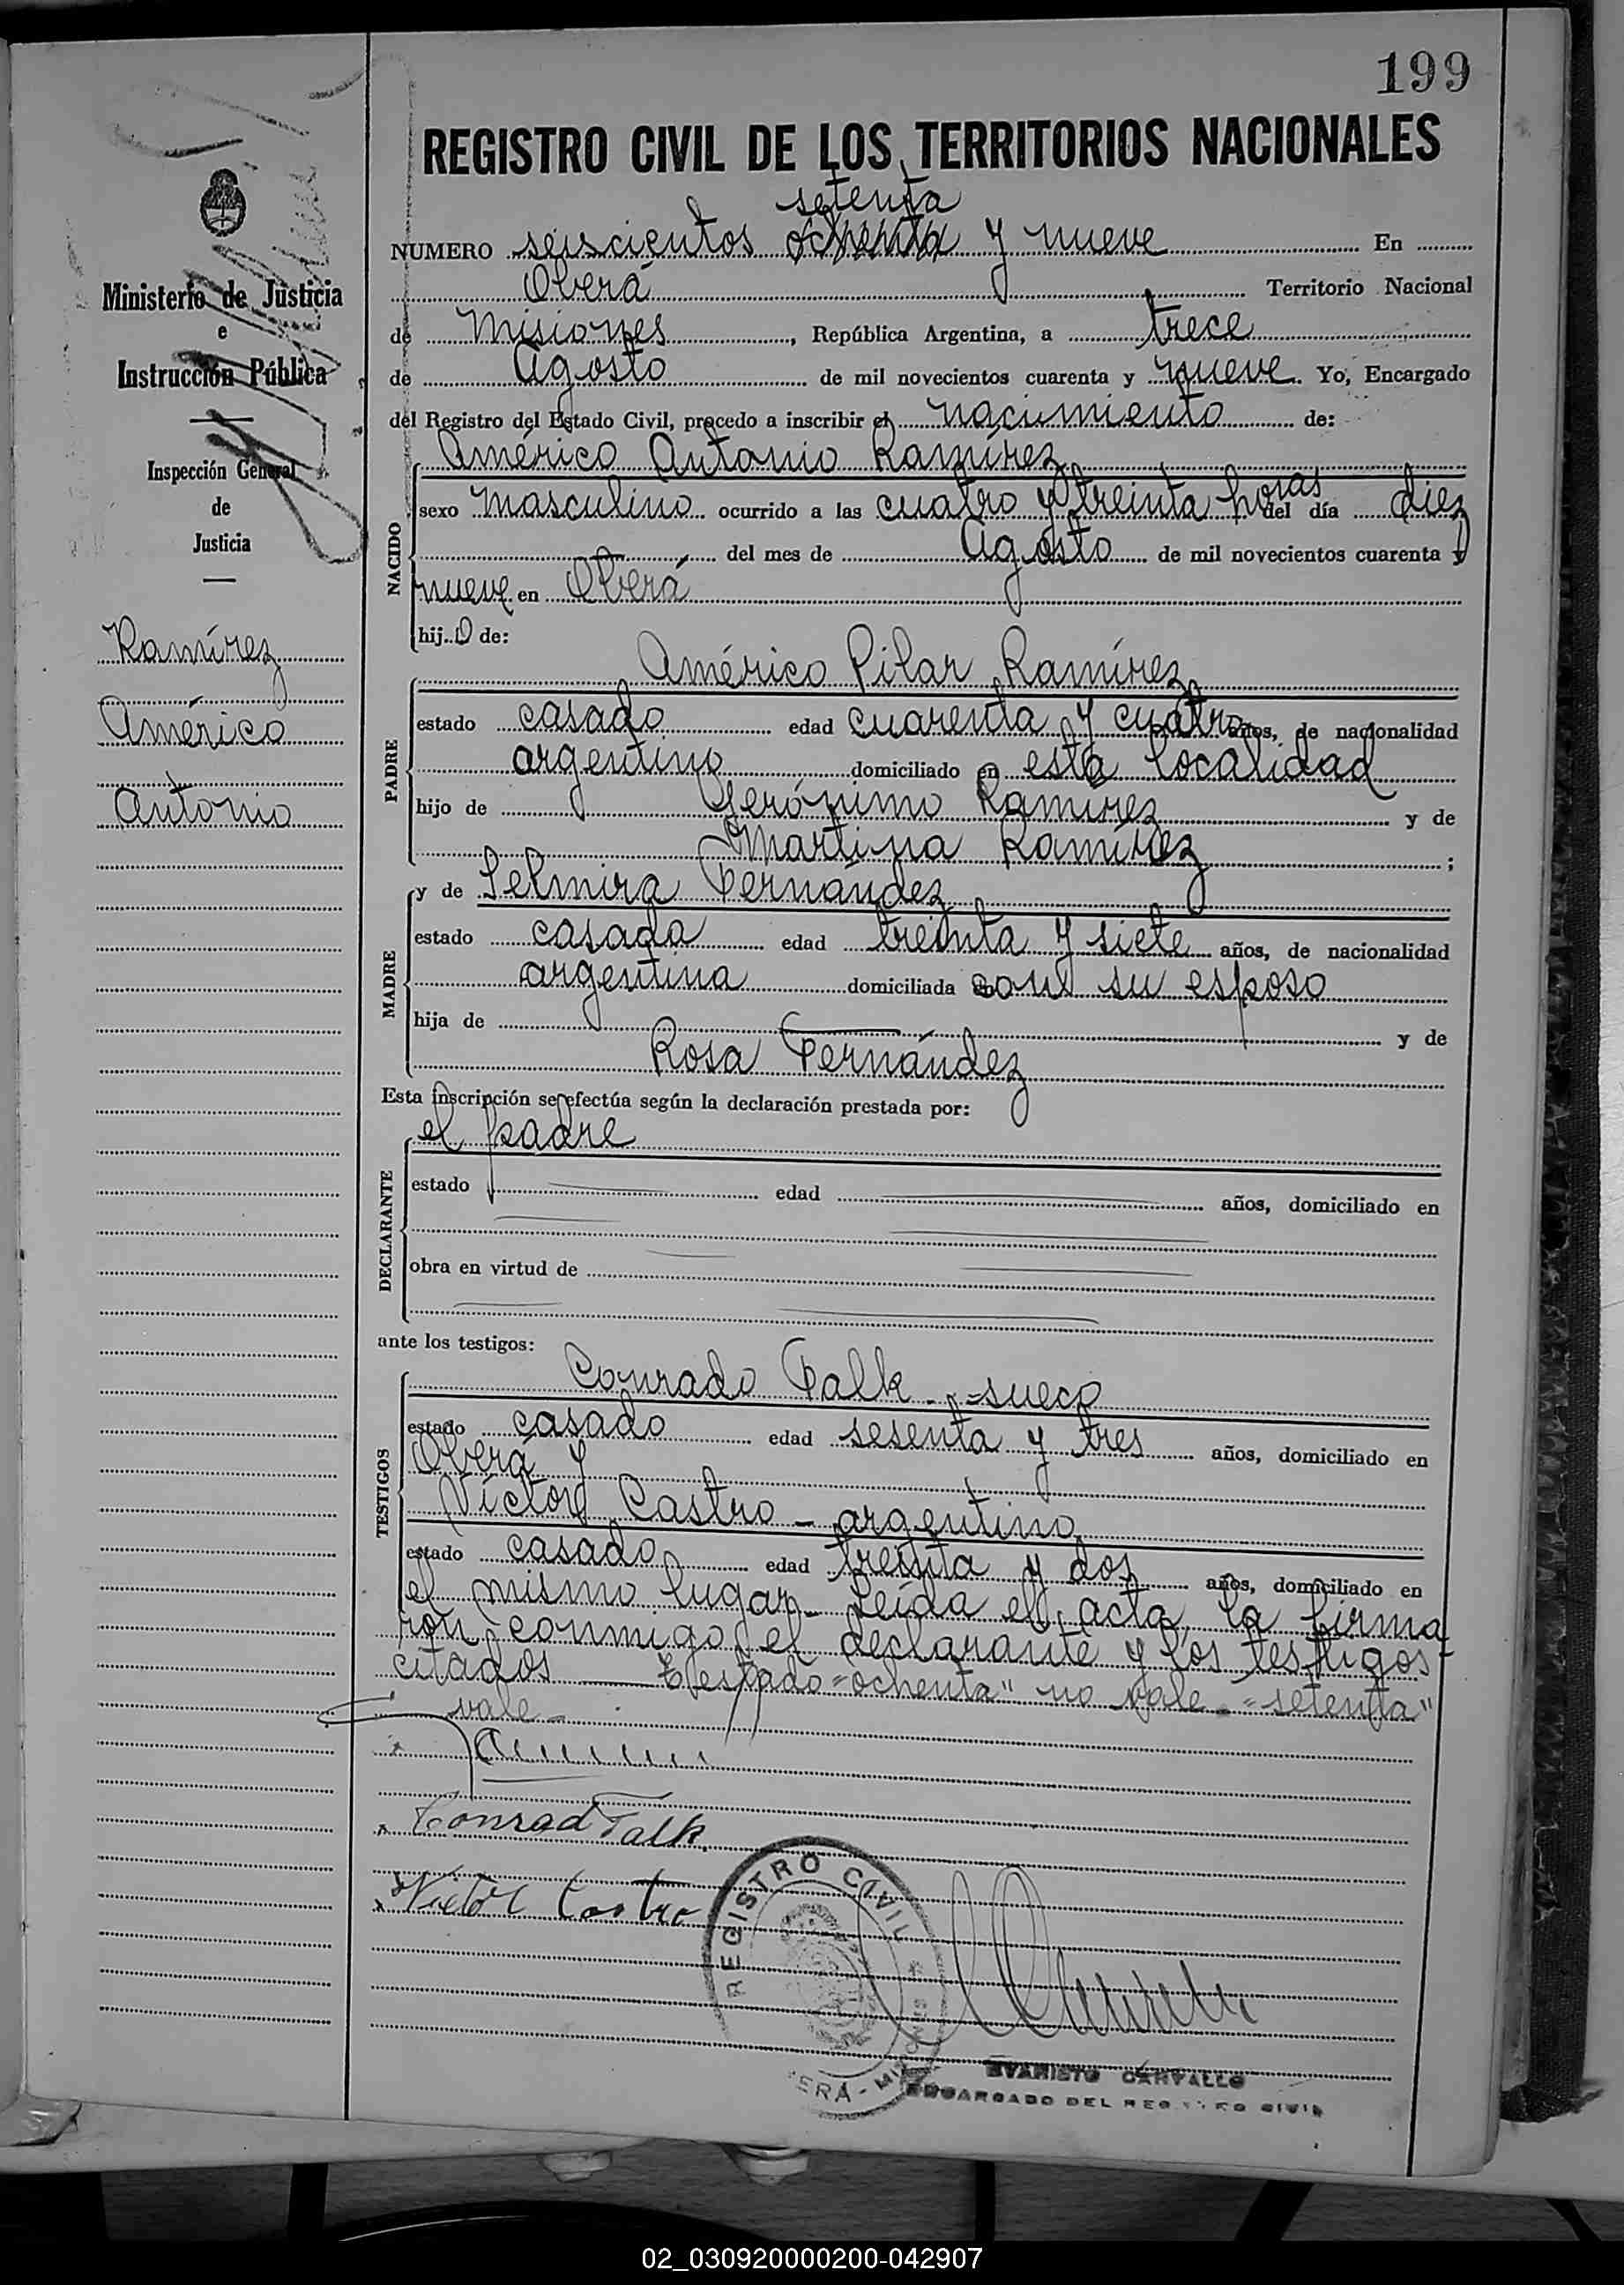 199
REGISTRO CIVIL DE LOS TERRITORIOS NACIONALES
setenta
NUMERO seiscientos ochenta y nueve En
Oberá Territorio Nacional
de Misiones, República Argentina, a trece
de Agosto de mil novecientos cuarenta y nueve. Yo, Encargado
del Registro del Estado Civil, procedo a inscribir el nacimiento de:
Américo Antonio Ramírez
NACIDO
sexo masculino ocurrido a las cuatro y treinta horas del día diez
del mes de Agosto de mil novecientos cuarenta y
nueve en Oberá
hijo de:
Américo Pilar Ramírez
PADRE
estado casado edad cuarenta y cuatro años, de nacionalidad
argentino domiciliado en esta localidad
hijo de Gerónimo Ramírez y de
Martina Ramírez;
MADRE
y de Selmira Fernández
estado casada edad treinta y siete años, de nacionalidad
argentina domiciliada con su esposo
hija de y de
Rosa Fernández
Esta inscripción se efectúa según la declaración prestada por:
DECLARANTE
el padre
estado edad años, domiciliado en
obra en virtud de
ante los testigos:
TESTIGOS
Conrado Falk - sueco
estado casado edad sesenta y tres años, domiciliado en
Oberá y
Víctor Castro - argentino
estado casado edad treinta y dos años, domiciliado en
el mismo lugar - Leída el acta, la firma
ron conmigo el declarante y los testigos
citados — Testado = "ochenta" no vale - "setenta"
vale -
Conrad Falk.
Victor Castro
REGISTRO CIVIL
EVARISTO CARVALLO
ENCARGADO DEL REGISTRO CIVIL
Ministerio de Justicia
e
Instrucción Pública
Inspección General
de
Justicia
Ramírez
Américo
Antonio
02_030920000200-042907